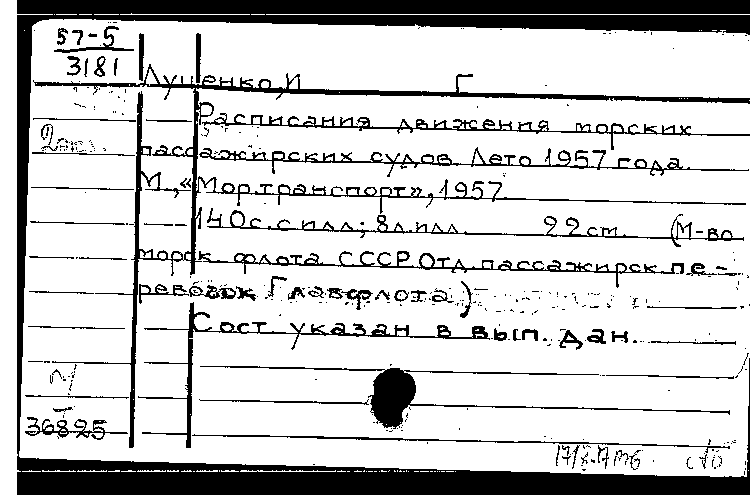 57-5
3181
Луценко, И Г
Расписания движения морских
пассажирских судов. Лето 1957 года.
М., «Мор.транспорт», 1957.
140с. с илл; 8л.илл. 22 cm. (М-во
морск. флота СССР. Отд. пассажирск. пе-
ревозок Главфлота)
Сост. указан в вып. дан.
36825